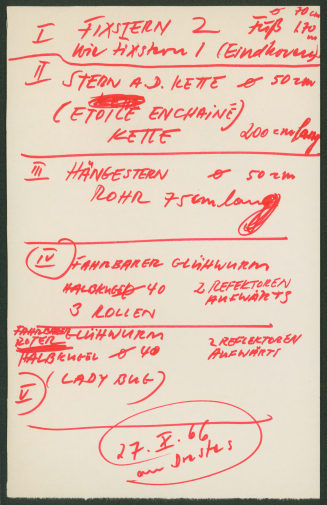 ø 70 cm
I FIXSTERN 2 Füß 170 m
wie Fixstern 1 (Eindhoven)
II STERN A.D. KETTE ø 50 cm
(ETOILE ENCHAINÉ)
KETTE 200 cm lang
III HÄNGESTERN ø 50 cm
ROHR 75 cm lang
IV FAHRBARER GLÜHWURM
HALBKUGEL 40 2 REFLEKTOREN
3 ROLLEN AUFWÄRTS
FAHRBARER GLÜHWURM
ROTER 2 REFLEKTOREN
HALBKUGEL ø 40 AUFWÄRTS
V (LADY BUG)
27. X. 66
an